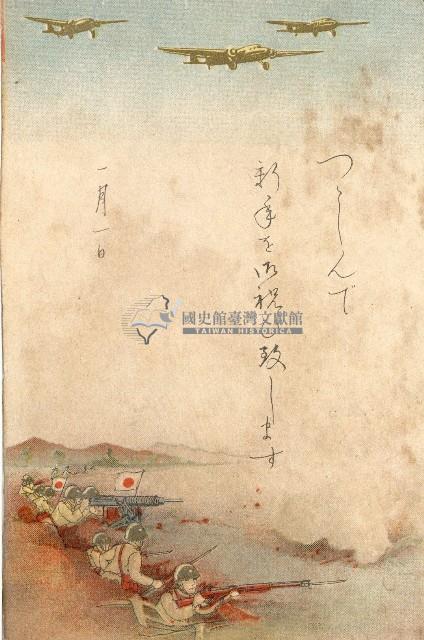 つゝしんで
新年を御祝ひ致します
一月一日
國史館臺灣文獻館
TAIWAN HISTORICA